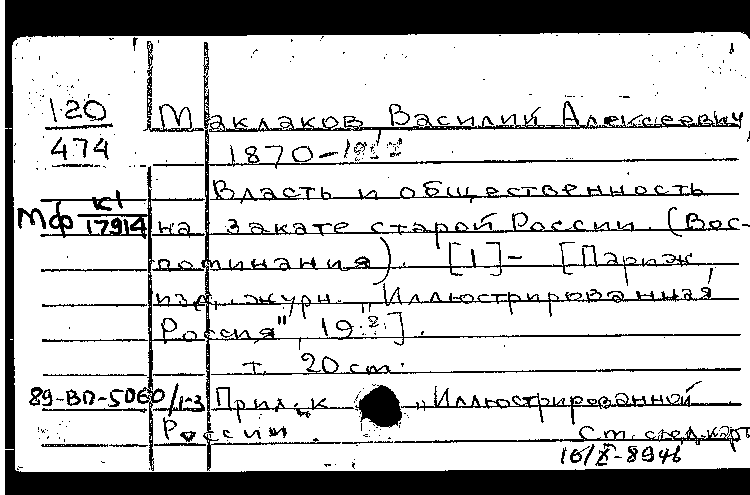 120
474
Маклаков, Василий Алексеевич,
1870-1957
Власть и общественность
МФ К1
17914
на закате старой России. (Вос-
поминания). [1]- [Париж,
изд. журн. „Иллюстрированная
Россия", 19 ].
т. 20 см.
89-ВП-5060/1-3
Прил. к „Иллюстрированной
России".
См. след. карт
16/X-89